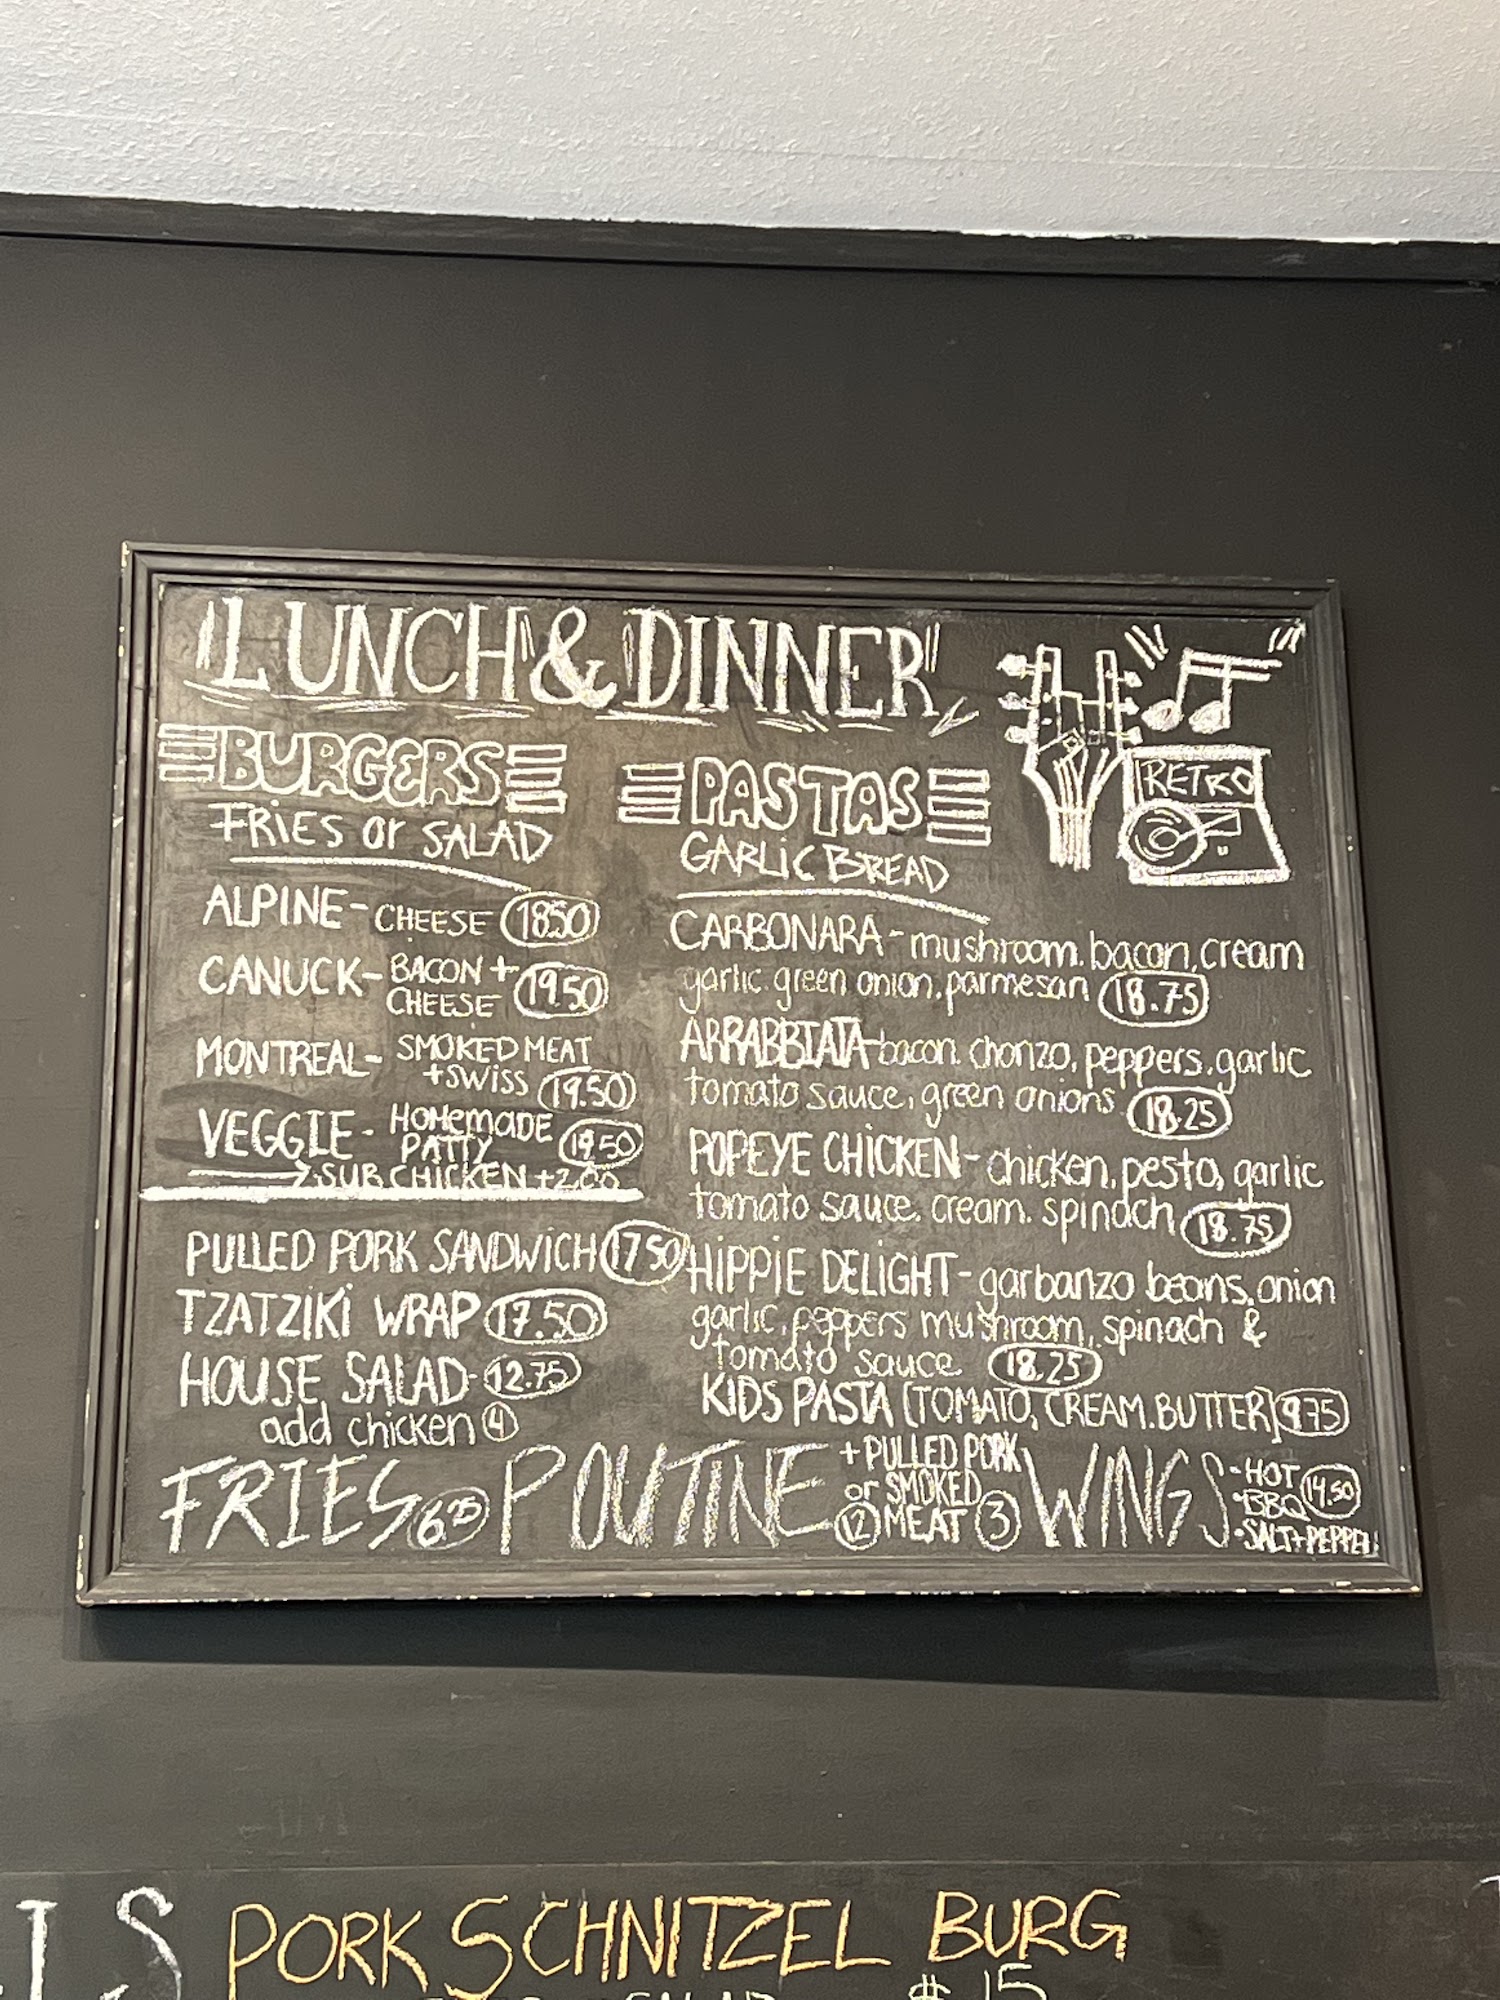 LUNCH & DINNER
BURGERS
FRIES or SALAD
ALPINE - CHEESE 18.50
CANUCK - BACON + CHEESE 19.50
MONTREAL - SMOKED MEAT
+ SWISS 19.50
VEGGIE - HOMEMADE
PATTY 19.50
SUB CHICKEN +2.00
PULLED PORK SANDWICH 17.50
TZATZIKI WRAP 17.50
HOUSE SALAD - 12.75
add chicken 4
PASTAS
GARLIC BREAD
CARBONARA - mushroom, bacon, cream
garlic, green onion, parmesan 18.75
ARRABBIATA - bacon, chorizo, peppers, garlic
tomato sauce, green onions 18.25
POPEYE CHICKEN - chicken, pesto, garlic
tomato sauce, cream, spinach 18.75
HIPPIE DELIGHT - garbanzo beans, onion
garlic, peppers mushroom, spinach &
tomato sauce 18.25
KIDS PASTA [TOMATO, CREAM, BUTTER] 9.75
RETRO
FRIES 6.25
POUTINE 12
+ PULLED PORK
or SMOKED
MEAT 3
WINGS 14.50
• HOT
• BBQ
• SALT + PEPPER
LS
PORK SCHNITZEL BURG
$15